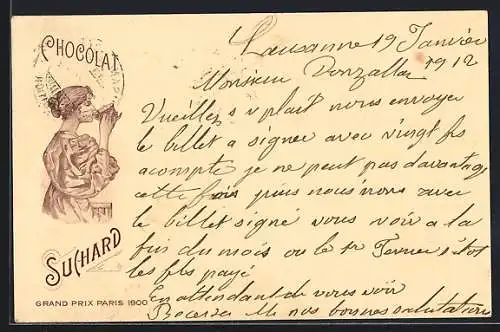 CHOCOLAT
SUCHARD
GRAND PRIX PARIS 1900
Lausanne 19 Janvier
1912
Monsieur Donzallaz
Vueillez s v plait nous envoyer
le billet a signer avec vingt frs
acompte je ne peut pas davantage
cette fois puis nous nous
le billet signé vous voir a la
fin du mois ou le 1r Fevrier sitot
les frs payé
En attendant de vous voir
Recevez Me nos bonnes salutations